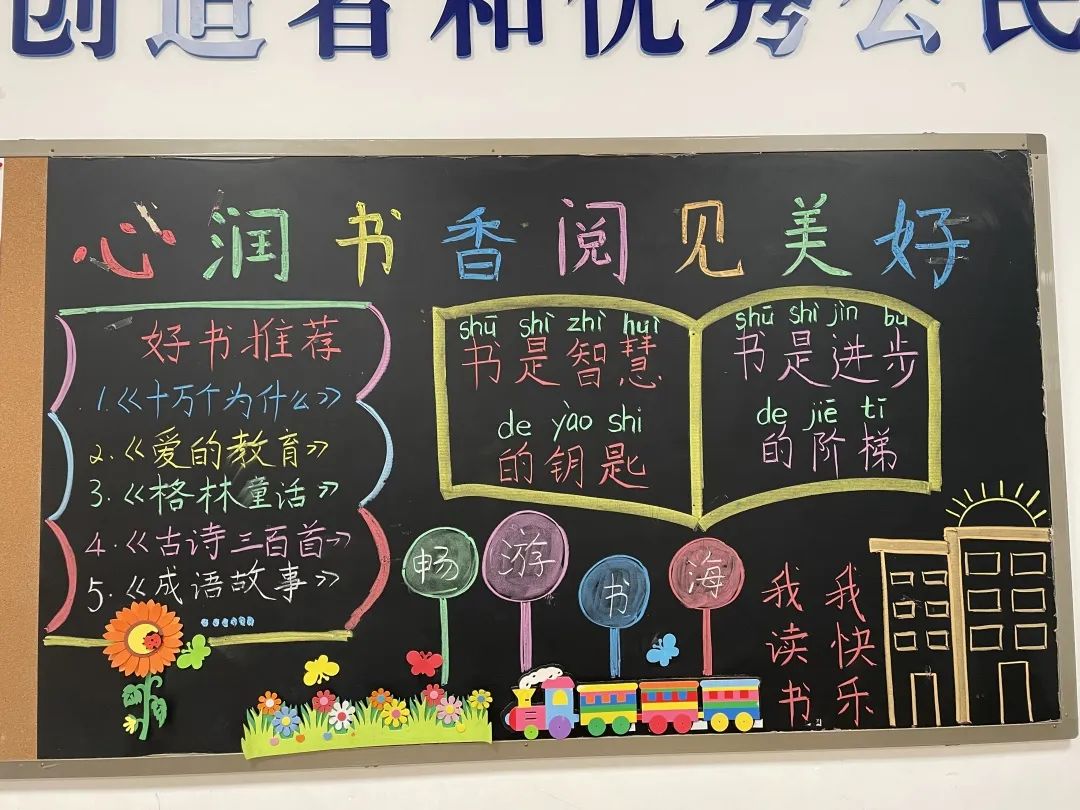 创造者和优秀公民
心润书香阅见美好
好书推荐
1.《十万个为什么》
2.《爱的教育》
3.《格林童话》
4.《古诗三百首》
5.《成语故事》
......
shū shì zhì huì
书是智慧
de yào shi
的钥匙
shū shì jìn bù
书是进步
de jiē tī
的阶梯
畅游书海
我读书
我快乐